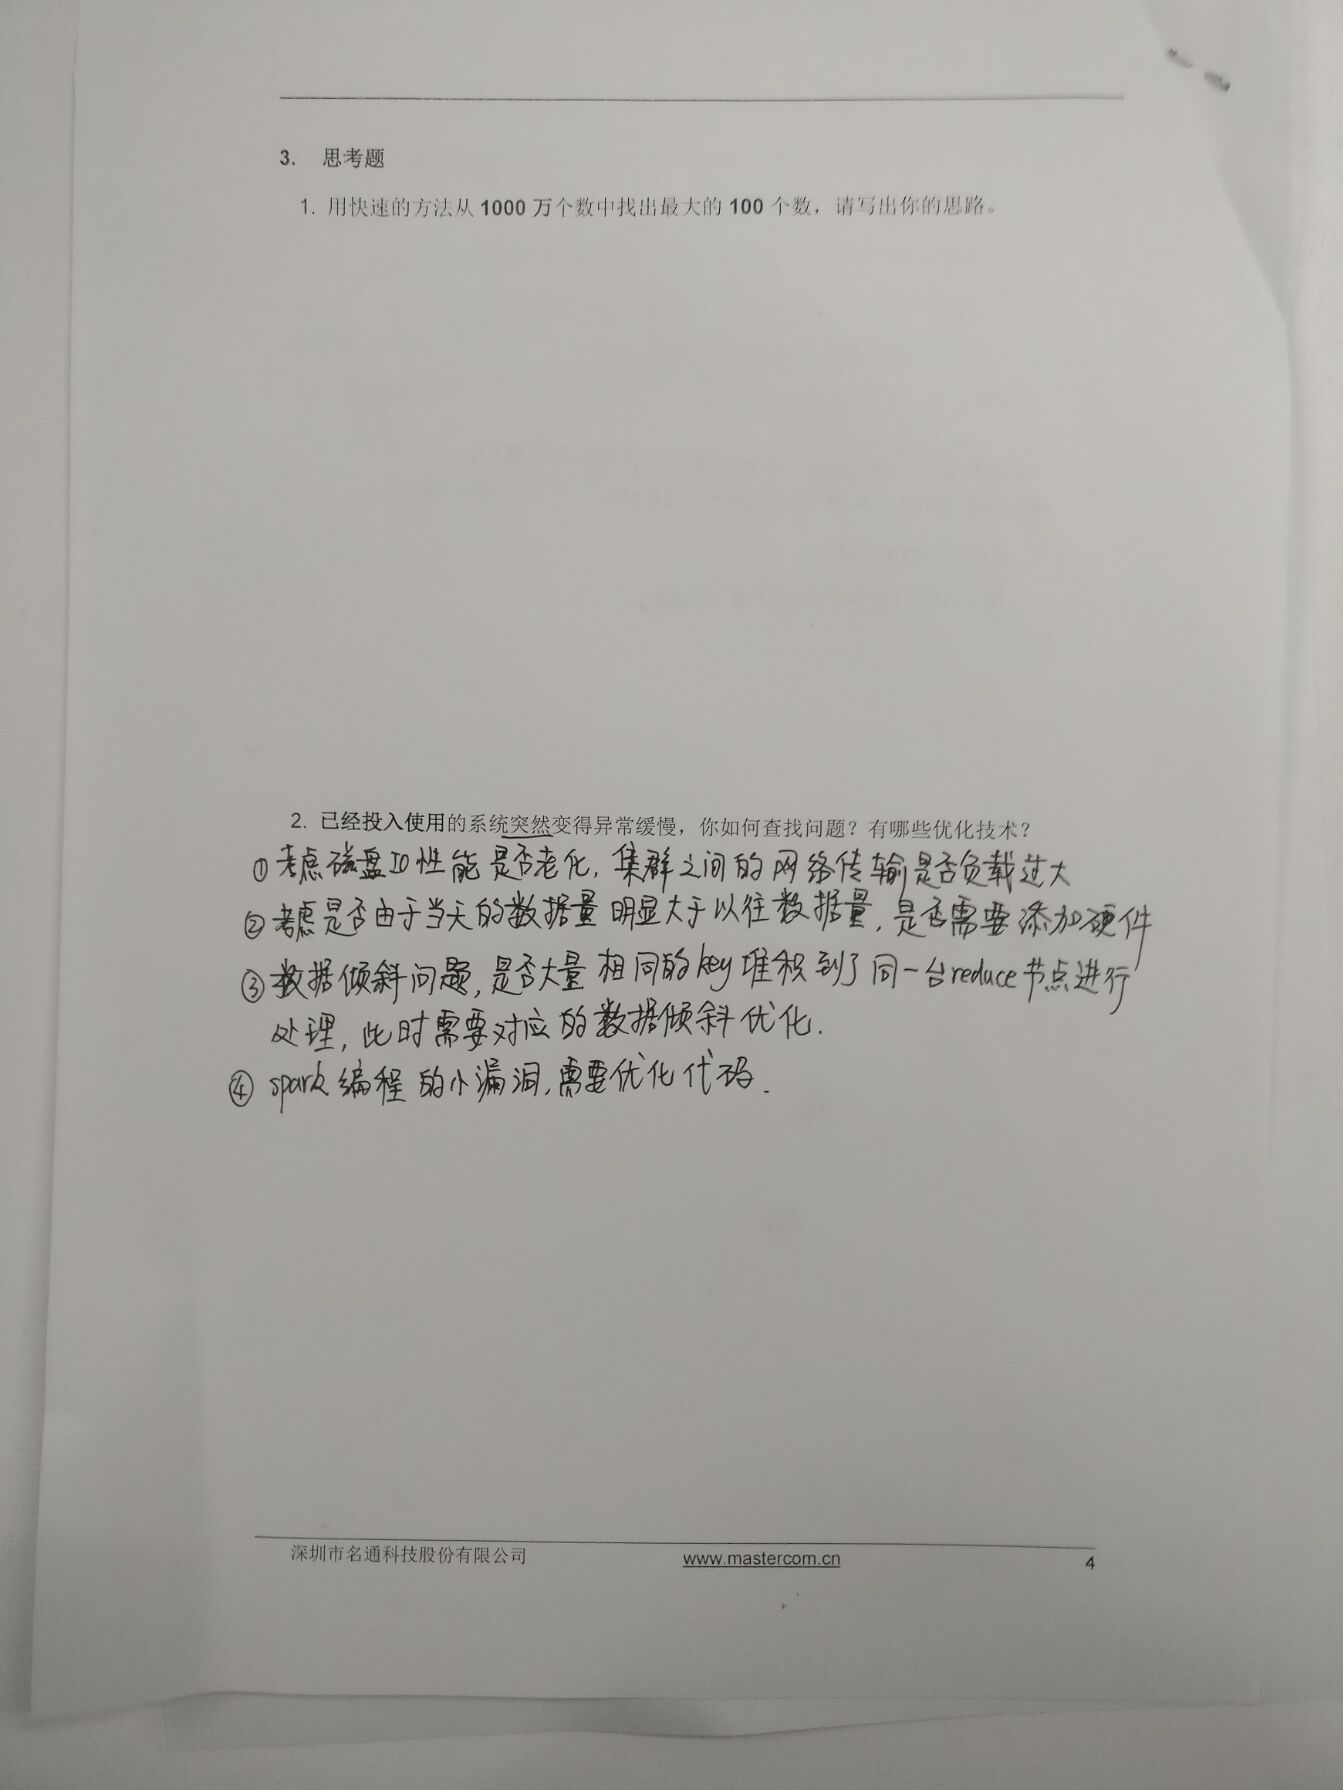 3. 思考题
1. 用快速的方法从 1000 万个数中找出最大的 100 个数，请写出你的思路。
2. 已经投入使用的系统突然变得异常缓慢，你如何查找问题？有哪些优化技术？
①考虑磁盘IO性能是否老化，集群之间的网络传输是否负载过大
②考虑是否由于当天的数据量明显大于以往数据量，是否需要添加硬件
③数据倾斜问题，是否大量相同的key堆积到了同一台reduce节点进行
处理，此时需要对应的数据倾斜优化.
④spark编程的小漏洞，需要优化代码.
深圳市名通科技股份有限公司 www.mastercom.cn 4